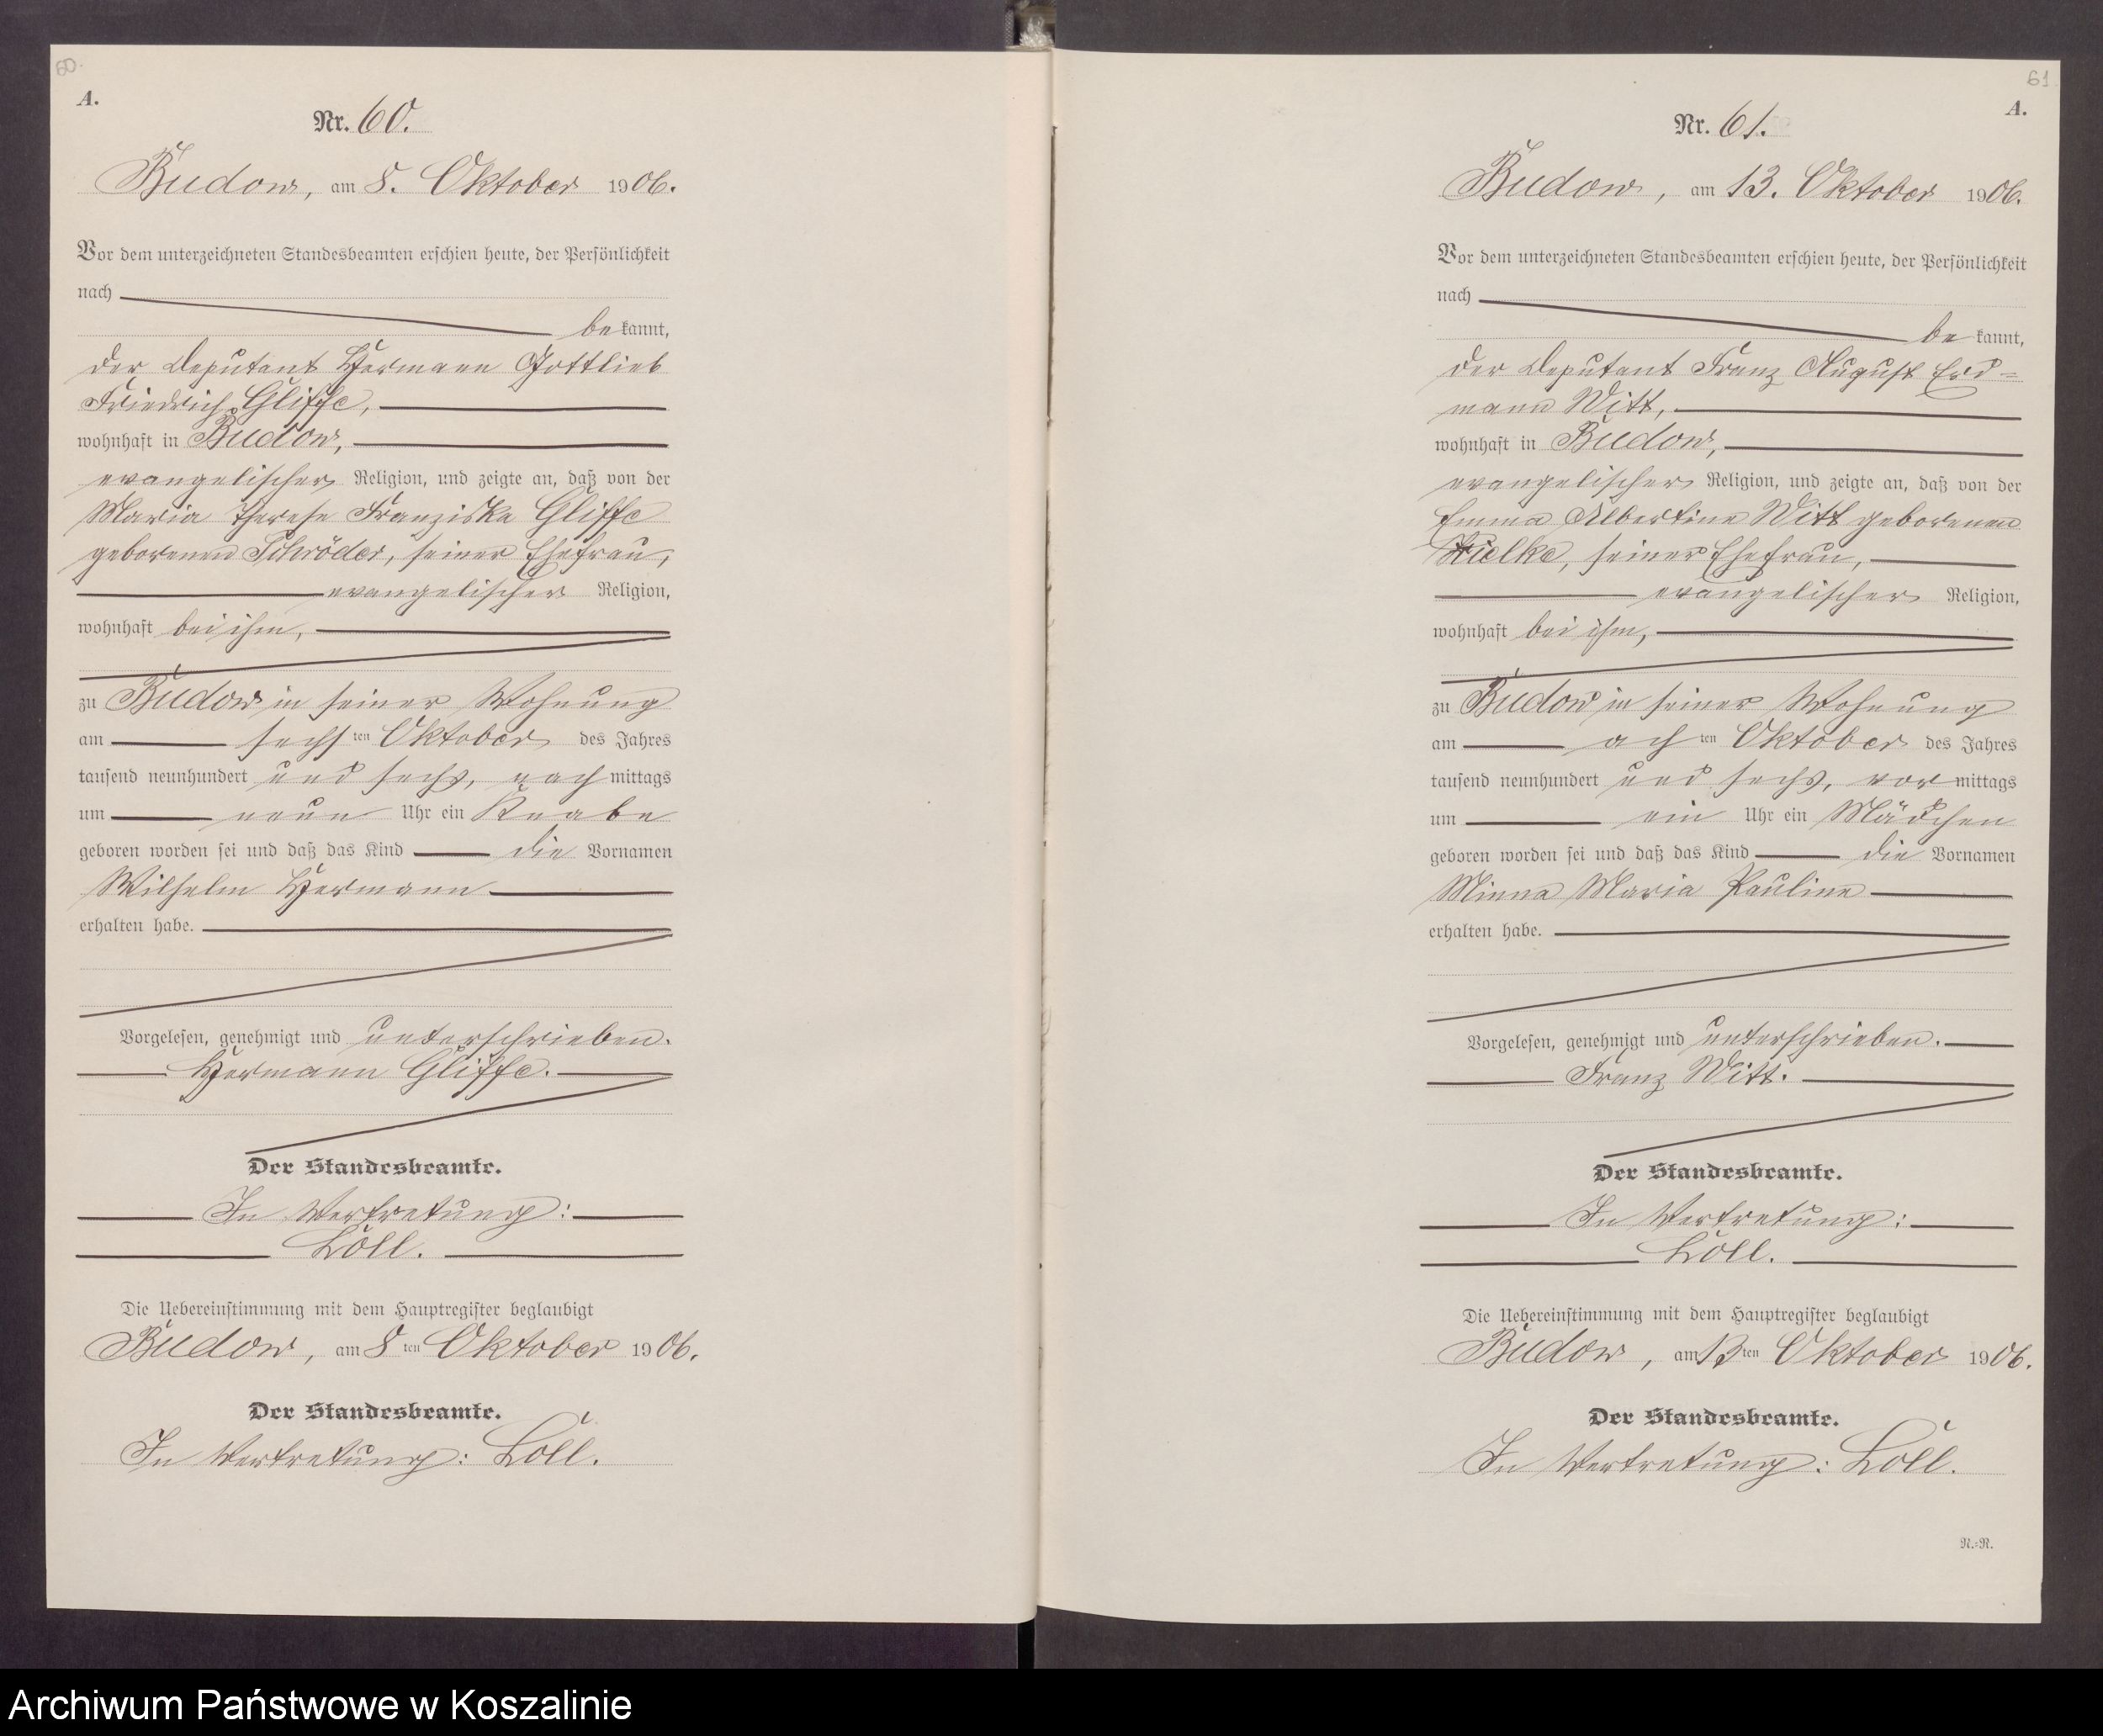 60.
A.
Nr. 60.
Budow, am 8. Oktober 1906.
Vor dem unterzeichneten Standesbeamten erschien heute, der Persönlichkeit
nach
be kannt,
der Deputant Hermann Gottlieb
Friedrich Gliffe,
wohnhaft in Budow,
evangelischer Religion, und zeigte an, daß von der
Maria Therese Franziska Gliffe
geborenen Schröder, seiner Ehefrau,
evangelischer Religion,
wohnhaft bei ihm,
zu Budow in seiner Wohnung
am sechs ten Oktober des Jahres
tausend neunhundert und sechs, nach mittags
um neun Uhr ein Knabe
geboren worden sei und daß das Kind die Vornamen
Wilhelm Hermann
erhalten habe.
Vorgelesen, genehmigt und unterschrieben.
Hermann Gliffe.
Der Standesbeamte.
In Vertretung:
Löll.
Die Uebereinstimmung mit dem Hauptregister beglaubigt
Budow, am 8 ten Oktober 1906.
Der Standesbeamte.
In Vertretung: Löll.
61
A.
Nr. 61.
Budow, am 13. Oktober 1906.
Vor dem unterzeichneten Standesbeamten erschien heute, der Persönlichkeit
nach
be kannt,
der Deputant Franz August Erd=
mann Witt,
wohnhaft in Budow,
evangelischer Religion, und zeigte an, daß von der
Emma Albertine Witt geborenen
seiner Ehefrau,
evangelischer Religion,
wohnhaft bei ihm,
zu Budow in seiner Wohnung
am ach ten Oktober des Jahres
tausend neunhundert und sechs, vor mittags
um ein Uhr ein Mädchen
geboren worden sei und daß das Kind die Vornamen
Minna Maria Pauline
erhalten habe.
Vorgelesen, genehmigt und unterschrieben.
Franz Witt.
Der Standesbeamte.
In Vertretung:
Löll.
Die Uebereinstimmung mit dem Hauptregister beglaubigt
Budow, am 13 ten Oktober 1906.
Der Standesbeamte.
In Vertretung: Löll.
R.=R.
Archiwum Państwowe w Koszalinie